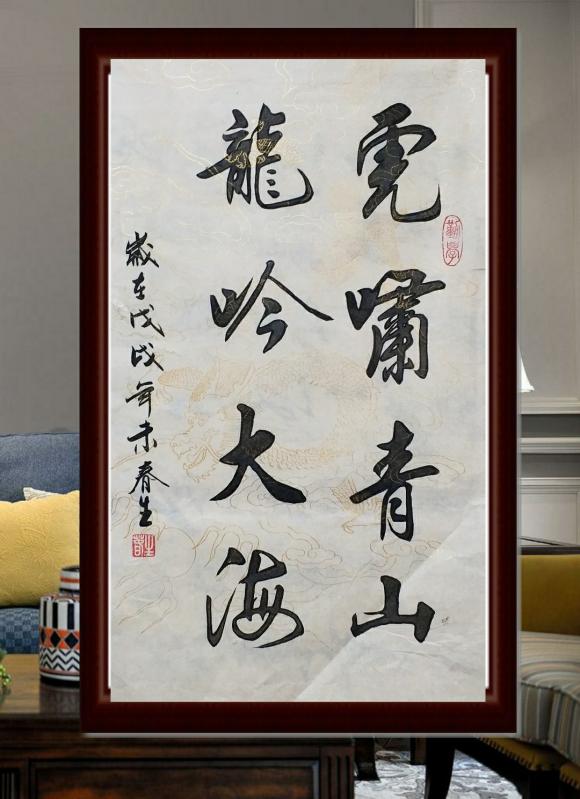 虎嘯青山
龍吟大海
歲在戊戌年朱春生
勤學
春生